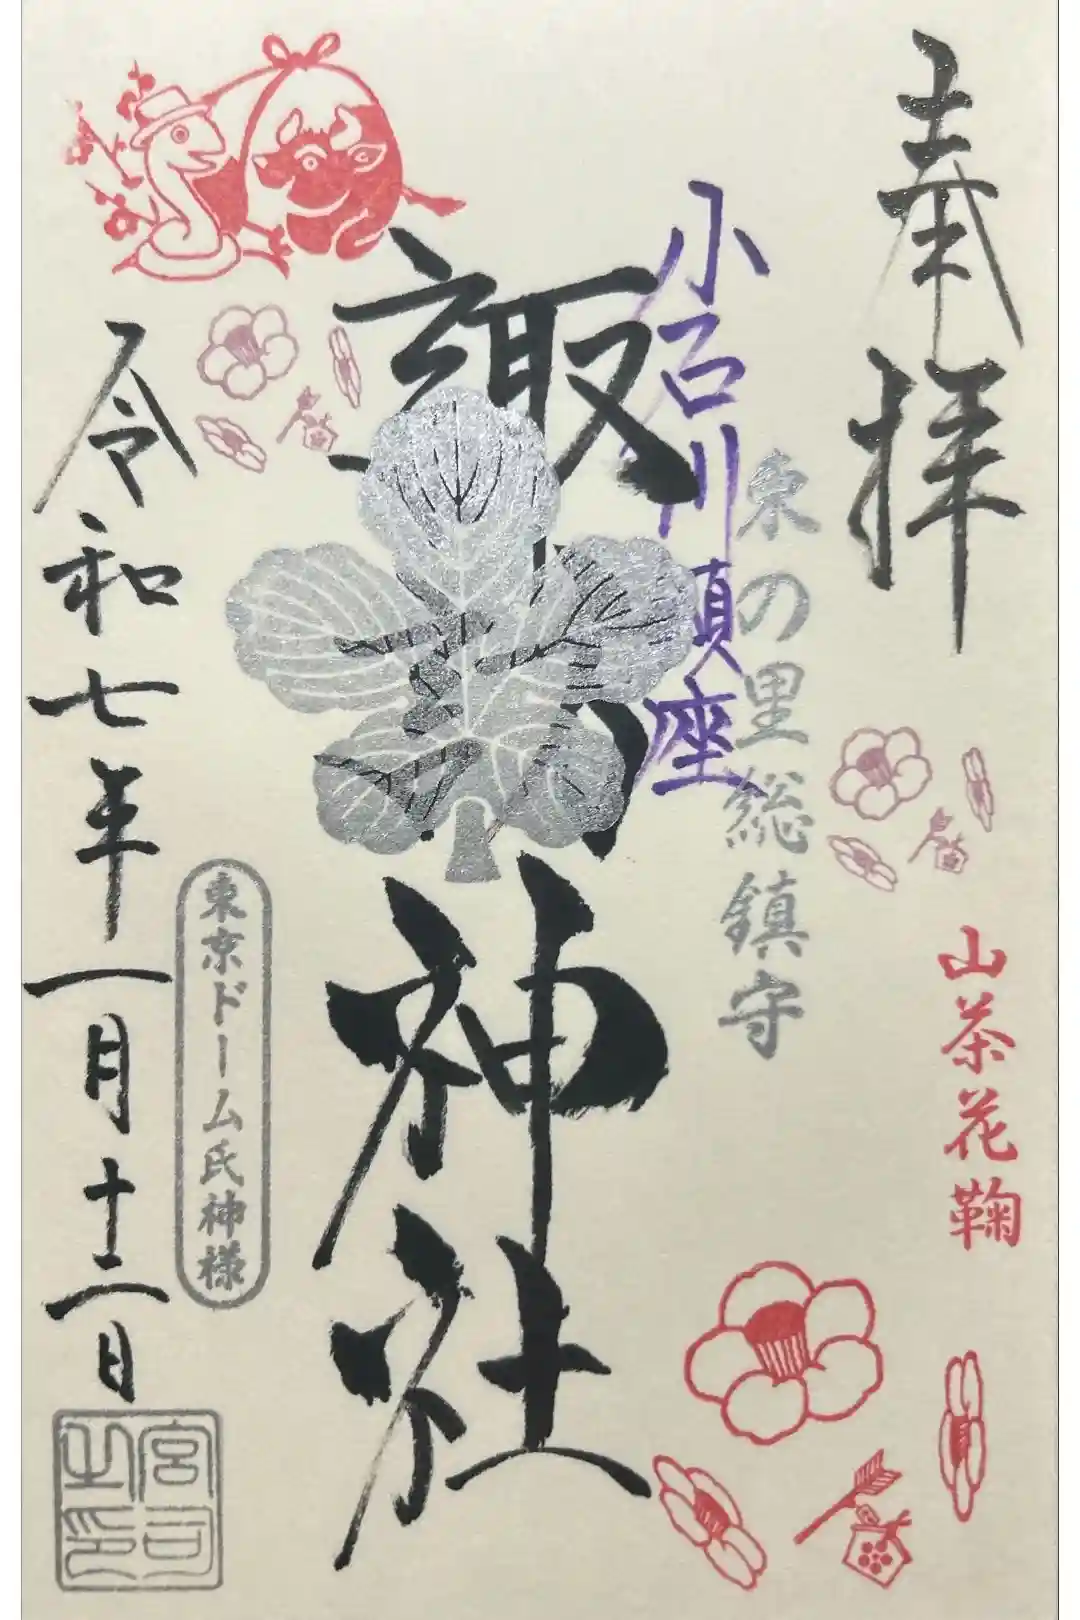 奉拝
山茶花鞠
の里総鎮守
小石川鎮座
諏訪神社
東京ドーム氏神様
令和七年一月十二日
宮司之印